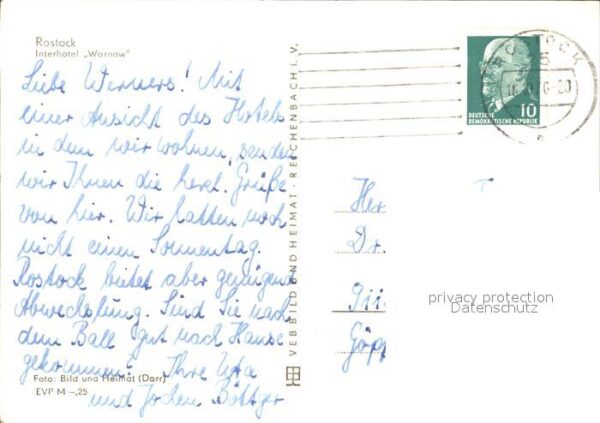 Rostock
Interhotel „Warnow“
Liebe Werners! Mit
einer Ansicht des Hotels
in dem wir wohnen, senden
wir Ihnen die herzl. Grüße
von hier. Wir hatten noch
nicht einen Sonnentag.
Rostock bietet aber genügend
Abwechslung. Sind Sie nach
dem Ball gut nach Hause
gekommen? Ihre Uta
und Jochen Böttger
Foto: Bild und Heimat (Darr)
EVP M –,25
VEB BILD UND HEIMAT · REICHENBACH I. V.
ROSTOCK
10
DEUTSCHE
DEMOKRATISCHE REPUBLIK
Her
Dr.
Göpp
privacy protection
Datenschutz